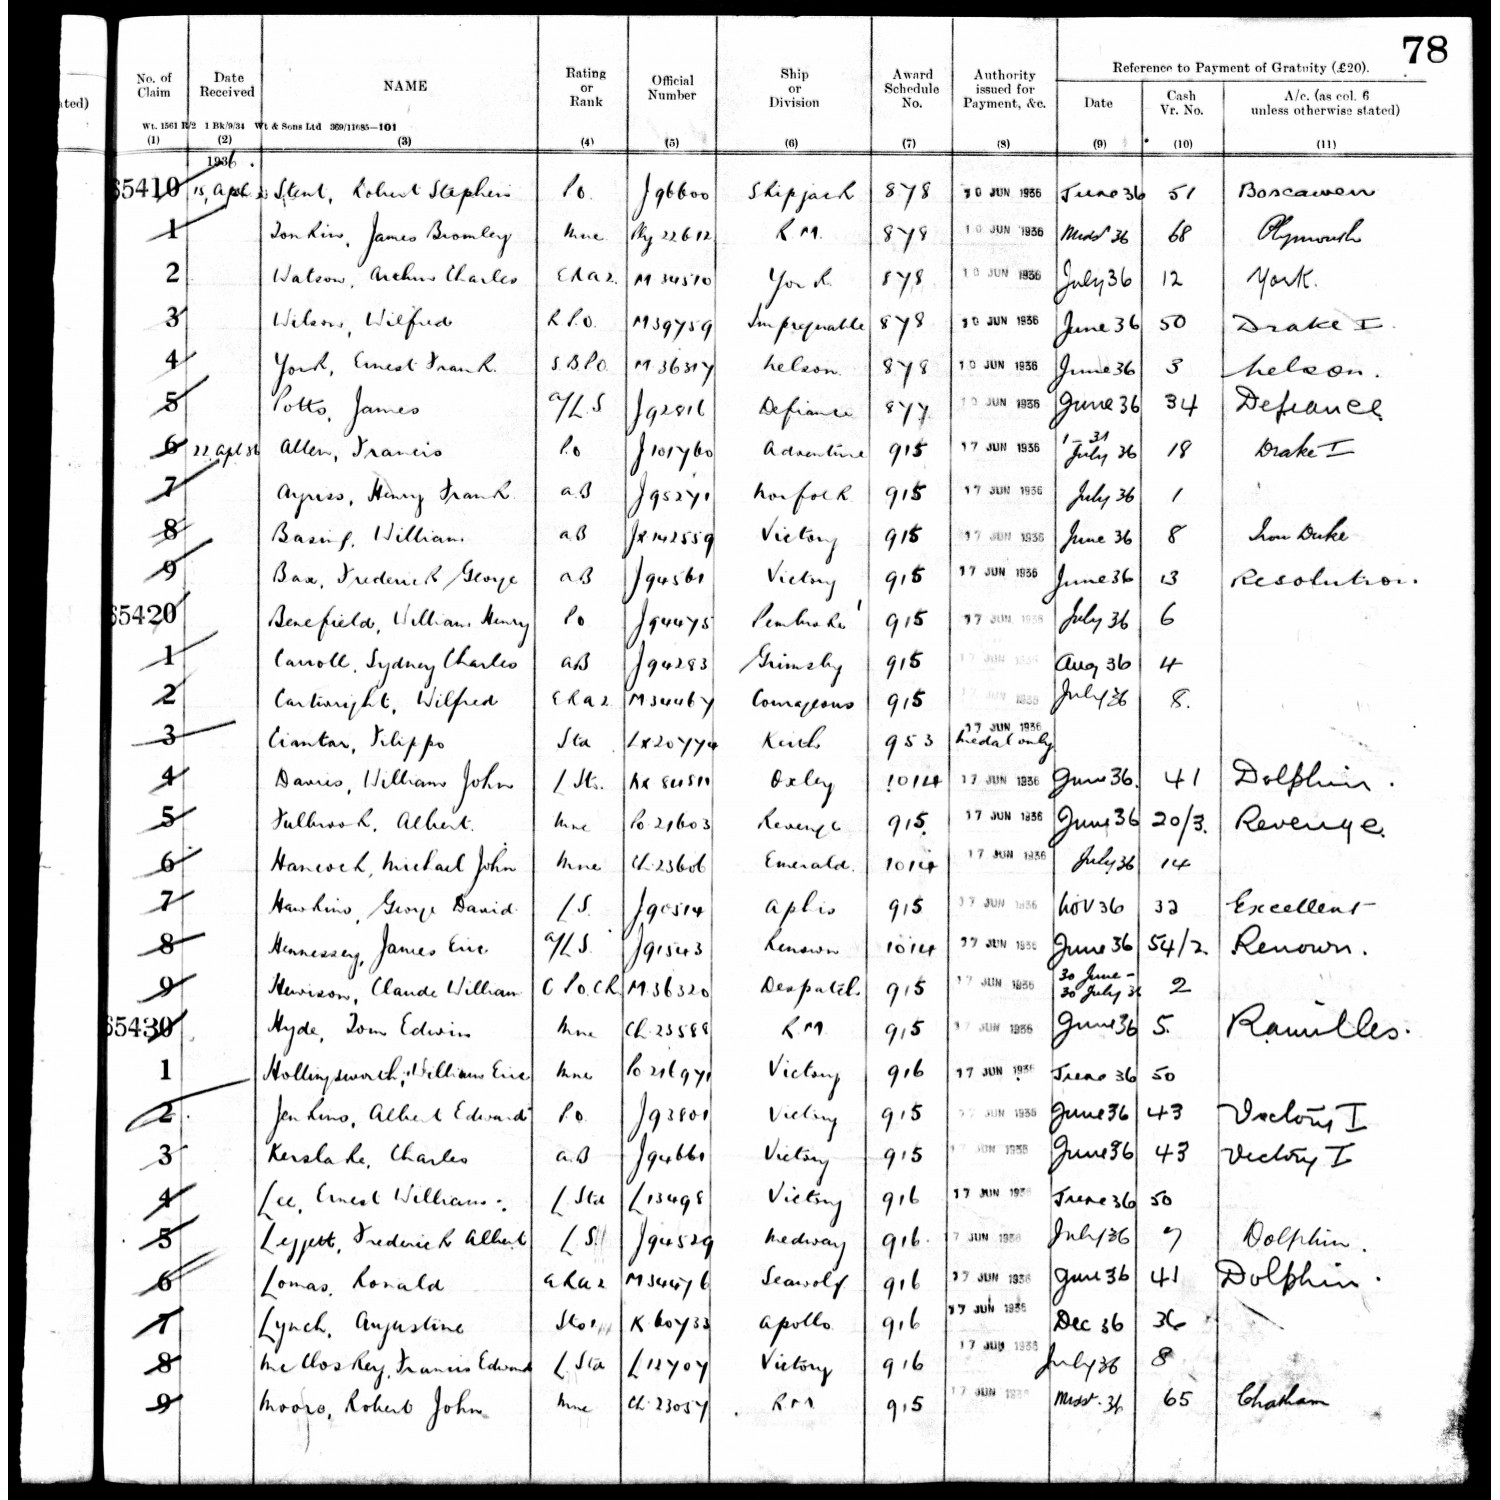 78
ated)
No. of Claim Date Received NAME Rating or Rank Official Number Ship or Division Award Schedule No. Authority issued for Payment, &c. Reference to Payment of Gratuity (£20).
Date Cash Vr. No. A/c. (as col. 6 unless otherwise stated)
Wt. 1561 R/2 1 Bk/9/34 Wt & Sons Ltd 369/11685—101
(1) (2) (3) (4) (5) (6) (7) (8) (9) (10) (11)
1936
65410 15 Apl Stent, Robert Stephen P.O. J96600 Skipjack 878 10 JUN 1936 June 36 51 Boscawen
1 Tonkin, James Bromley Mne Ply 22612 R.M. 878 10 JUN 1936 Midst 36 68 Plymouth
2 Watson, Arthur Charles ERA 2. M 34510 York 878 10 JUN 1936 July 36 12 York.
3 Wilson, Wilfred R.P.O. M39759 Impregnable 878 10 JUN 1936 June 36 50 Drake I.
4 York, Ernest Frank. S.B.P.O. M 36317 Nelson. 878 10 JUN 1936 June 36 3 Nelson.
5 Potts, James a/L.S J92816 Defiance 877 10 JUN 1936 June 36 34 Defiance.
6 22 Apl 36 Allen, Francis P.O J101760 Adventure 915 17 JUN 1936 1-31 July 36 18 Drake I
7 Ayriss, Henry Frank. A.B J95271 Norfolk 915 17 JUN 1936 July 36 1
8 Basing, William AB JX142559 Victory 915 17 JUN 1936 June 36 8 Iron Duke
9 Bax, Frederick George AB J94561 Victory 915 17 JUN 1936 June 36 13 Resolution.
65420 Benefield, William Henry P.O J94475 Pembroke 915 17 JUN 1936 July 36 6
1 Carroll, Sydney Charles AB J94283 Grimsby 915 17 JUN 1936 Aug 36 4
2 Cartwright, Wilfred ERA 2 M34467 Courageous 915 JUN 1936 July 36 8.
3 Ciantar, Filippo Std LX20774 Keith 953 17 JUN 1936 Medal only
4 Davies, William John L Sto. KX 84511 Oxley 1014 17 JUN 1936 June 36. 41 Dolphin.
5 Fulbrook, Albert. Mne Po.21603 Revenge 915. 17 JUN 1936 June 36 20/3. Revenge.
6 Hancock, Michael John Mne Ch.23606 Emerald. 1014 17 JUN 1936 July 36 14
7 Hawkins, George David L S. J90514 Aphis 915 17 JUN 1936 Nov 36 32 Excellent
8 Hennessey, James Eric a/L.S. J91543 Renown 1014 17 JUN 1936 June 36 54/2. Renown.
9 Hewison, Claude William C P.O. Ck M.36320 Despatch 915 17 JUN 1936 30 June - 30 July 36 2
65430 Hyde, Tom Edwin Mne Ch.23588 R.M. 915 17 JUN 1936 June 36 5. Ramilles.
1 Hollingsworth, William Eric Mne Po.21697 Victory 916 17 JUN 1936 June 36 50
2 Jenkins, Albert Edward P.O. J93801 Victory 915 17 JUN 1936 June 36 43 Victory I
3 Kerslake, Charles A.B J94661 Victory 915 17 JUN 1936 June 36 43 Victory I
4 Lee, Ernest William. L Std L13498 Victory 916 17 JUN 1936 June 36 50
5 Leggett, Frederick Albert L.S. J94529 Medway 916. 17 JUN 1936 July 36 7 Dolphin.
6 Lomas, Ronald ERA 2 M34476 Seawolf 916 17 JUN 1936 June 36 41 Dolphin.
7 Lynch, Augustine Sto 1 K.60733 Apollo 916 17 JUN 1936 Dec 36 36
8 McCloskey, Francis Edward L Std L12707 Victory 916 17 JUN 1936 July 36 8
9 Moore, Robert John Mne Ch.23057 R M 915 17 JUN 1936 Midst. 36 65 Chatham